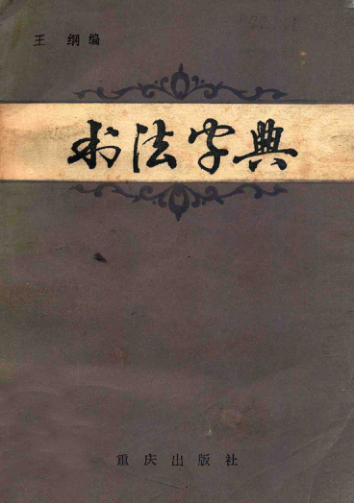 王 纲编
书法字典
重庆出版社